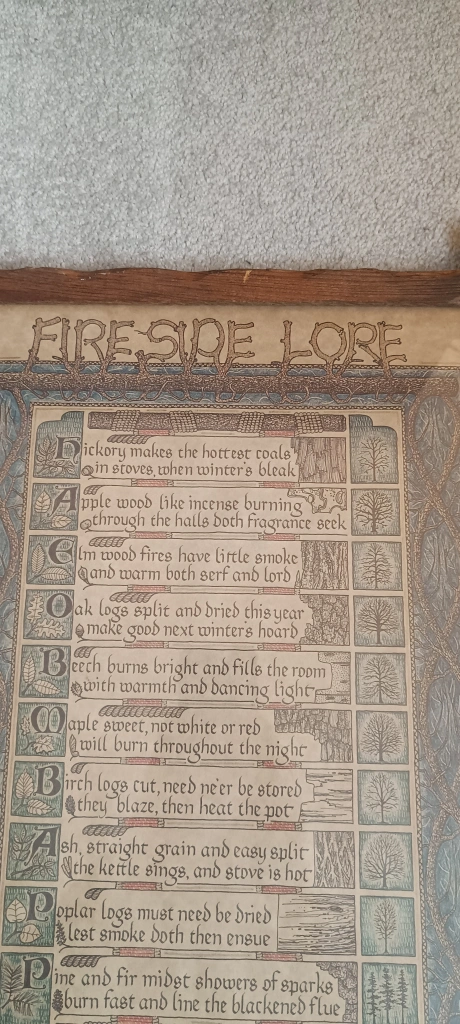 FIRESIDE LORE
Hickory makes the hottest coals
in stoves, when winter's bleak
Apple wood like incense burning
through the halls doth fragrance seek
Elm wood fires have little smoke
and warm both serf and lord
Oak logs split and dried this year
make good next winter's hoard
Beech burns bright and fills the room
with warmth and dancing light
Maple sweet, not white or red
will burn throughout the night
Birch logs cut, need ne'er be stored
they blaze, then heat the pot
Ash, straight grain and easy split
the kettle sings, and stove is hot
Poplar logs must need be dried
lest smoke doth then ensue
Pine and fir midst showers of sparks
burn fast and line the blackened flue